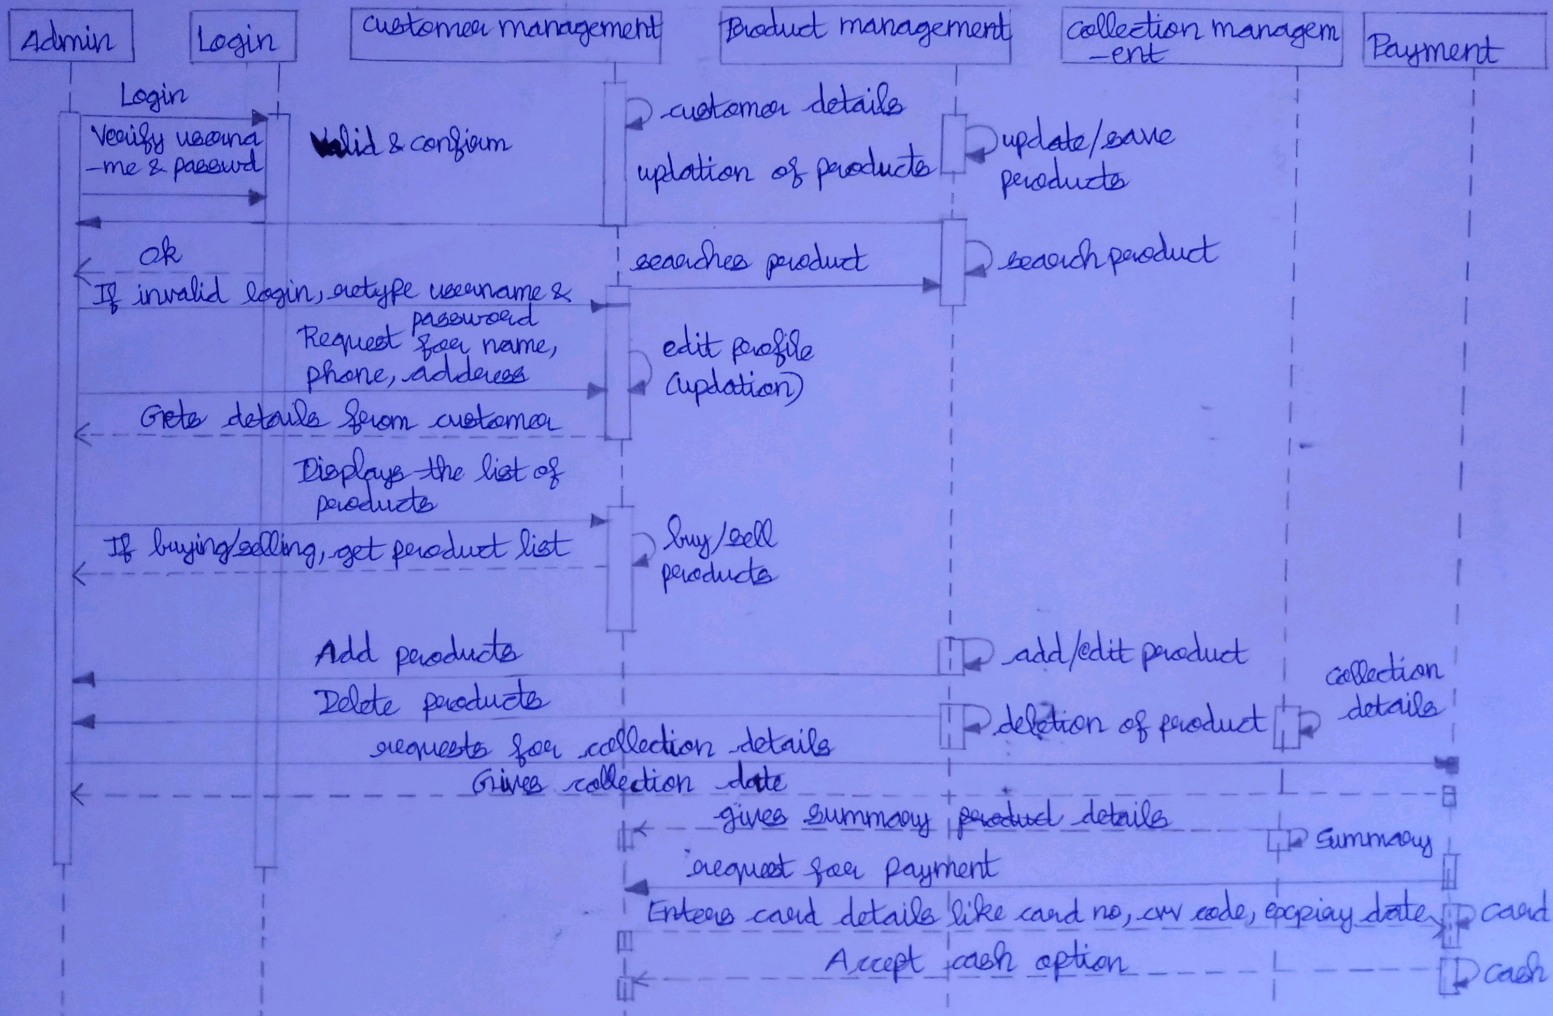 Admin
Login
Customer management
Product management
Collection managem
-ent
Payment
Login
Verify userna
-me & passwd
Valid & confirm
customer details
updation of products
update/save
products
Ok
searches product
search product
If invalid login, retype username &
password
Request for name,
phone, address
edit profile
(updation)
Gets details from customer
Displays the list of
products
If buying/selling, get product list
buy/sell
products
Add products
add/edit product
Collection
details
Delete products
deletion of product
requests for collection details
Gives collection date
gives summary product details
Summary
request for payment
Enters card details like card no, cvv code, expiry date
card
Accept cash option
cash